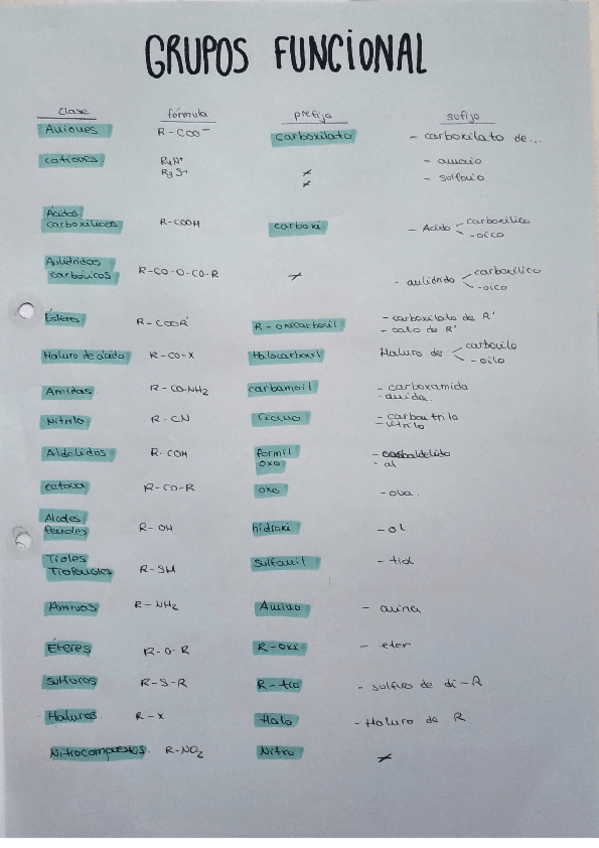 GRUPOS FUNCIONAL
clase fórmula prefijo sufijo
Aniones R-COO⁻ carboxilato - carboxilato de...
cationes R₄N⁺ - amonio
R₃S⁺ x - sulfonio
x
Ácidos
carboxílicos R-COOH carboxi - Ácido carboxílico
-oico
Anhídridos
carbónicos R-CO-O-CO-R x - anhídrido carboxílico
-oico
Ésteres R-COOR' R-oxicarbonil - carboxilato de R'
- oato de R'
Haluro de ácido R-CO-X Halocarbonil Haluro de carbonilo
-oilo
Amidas R-CO-NH₂ carbamoil - carboxamida
- amida.
Nitrilo R-CN Ciano - carbonitrilo
- nitrilo
Aldehídos R-COH formil - carbaldehido
oxo - al
cetona R-CO-R oxo - ona.
Alcoles
fenoles R-OH hidroxi - ol
Tioles
Tiofenoles R-SH Sulfanil - tiol
Aminas R-NH₂ Amino - amina
Éteres R-O-R R-oxi - eter
Sulfuros R-S-R R-tio - sulfuro de di-R
Haluros R-X Halo - Haluro de R
Nitrocompuestos. R-NO₂ Nitro x